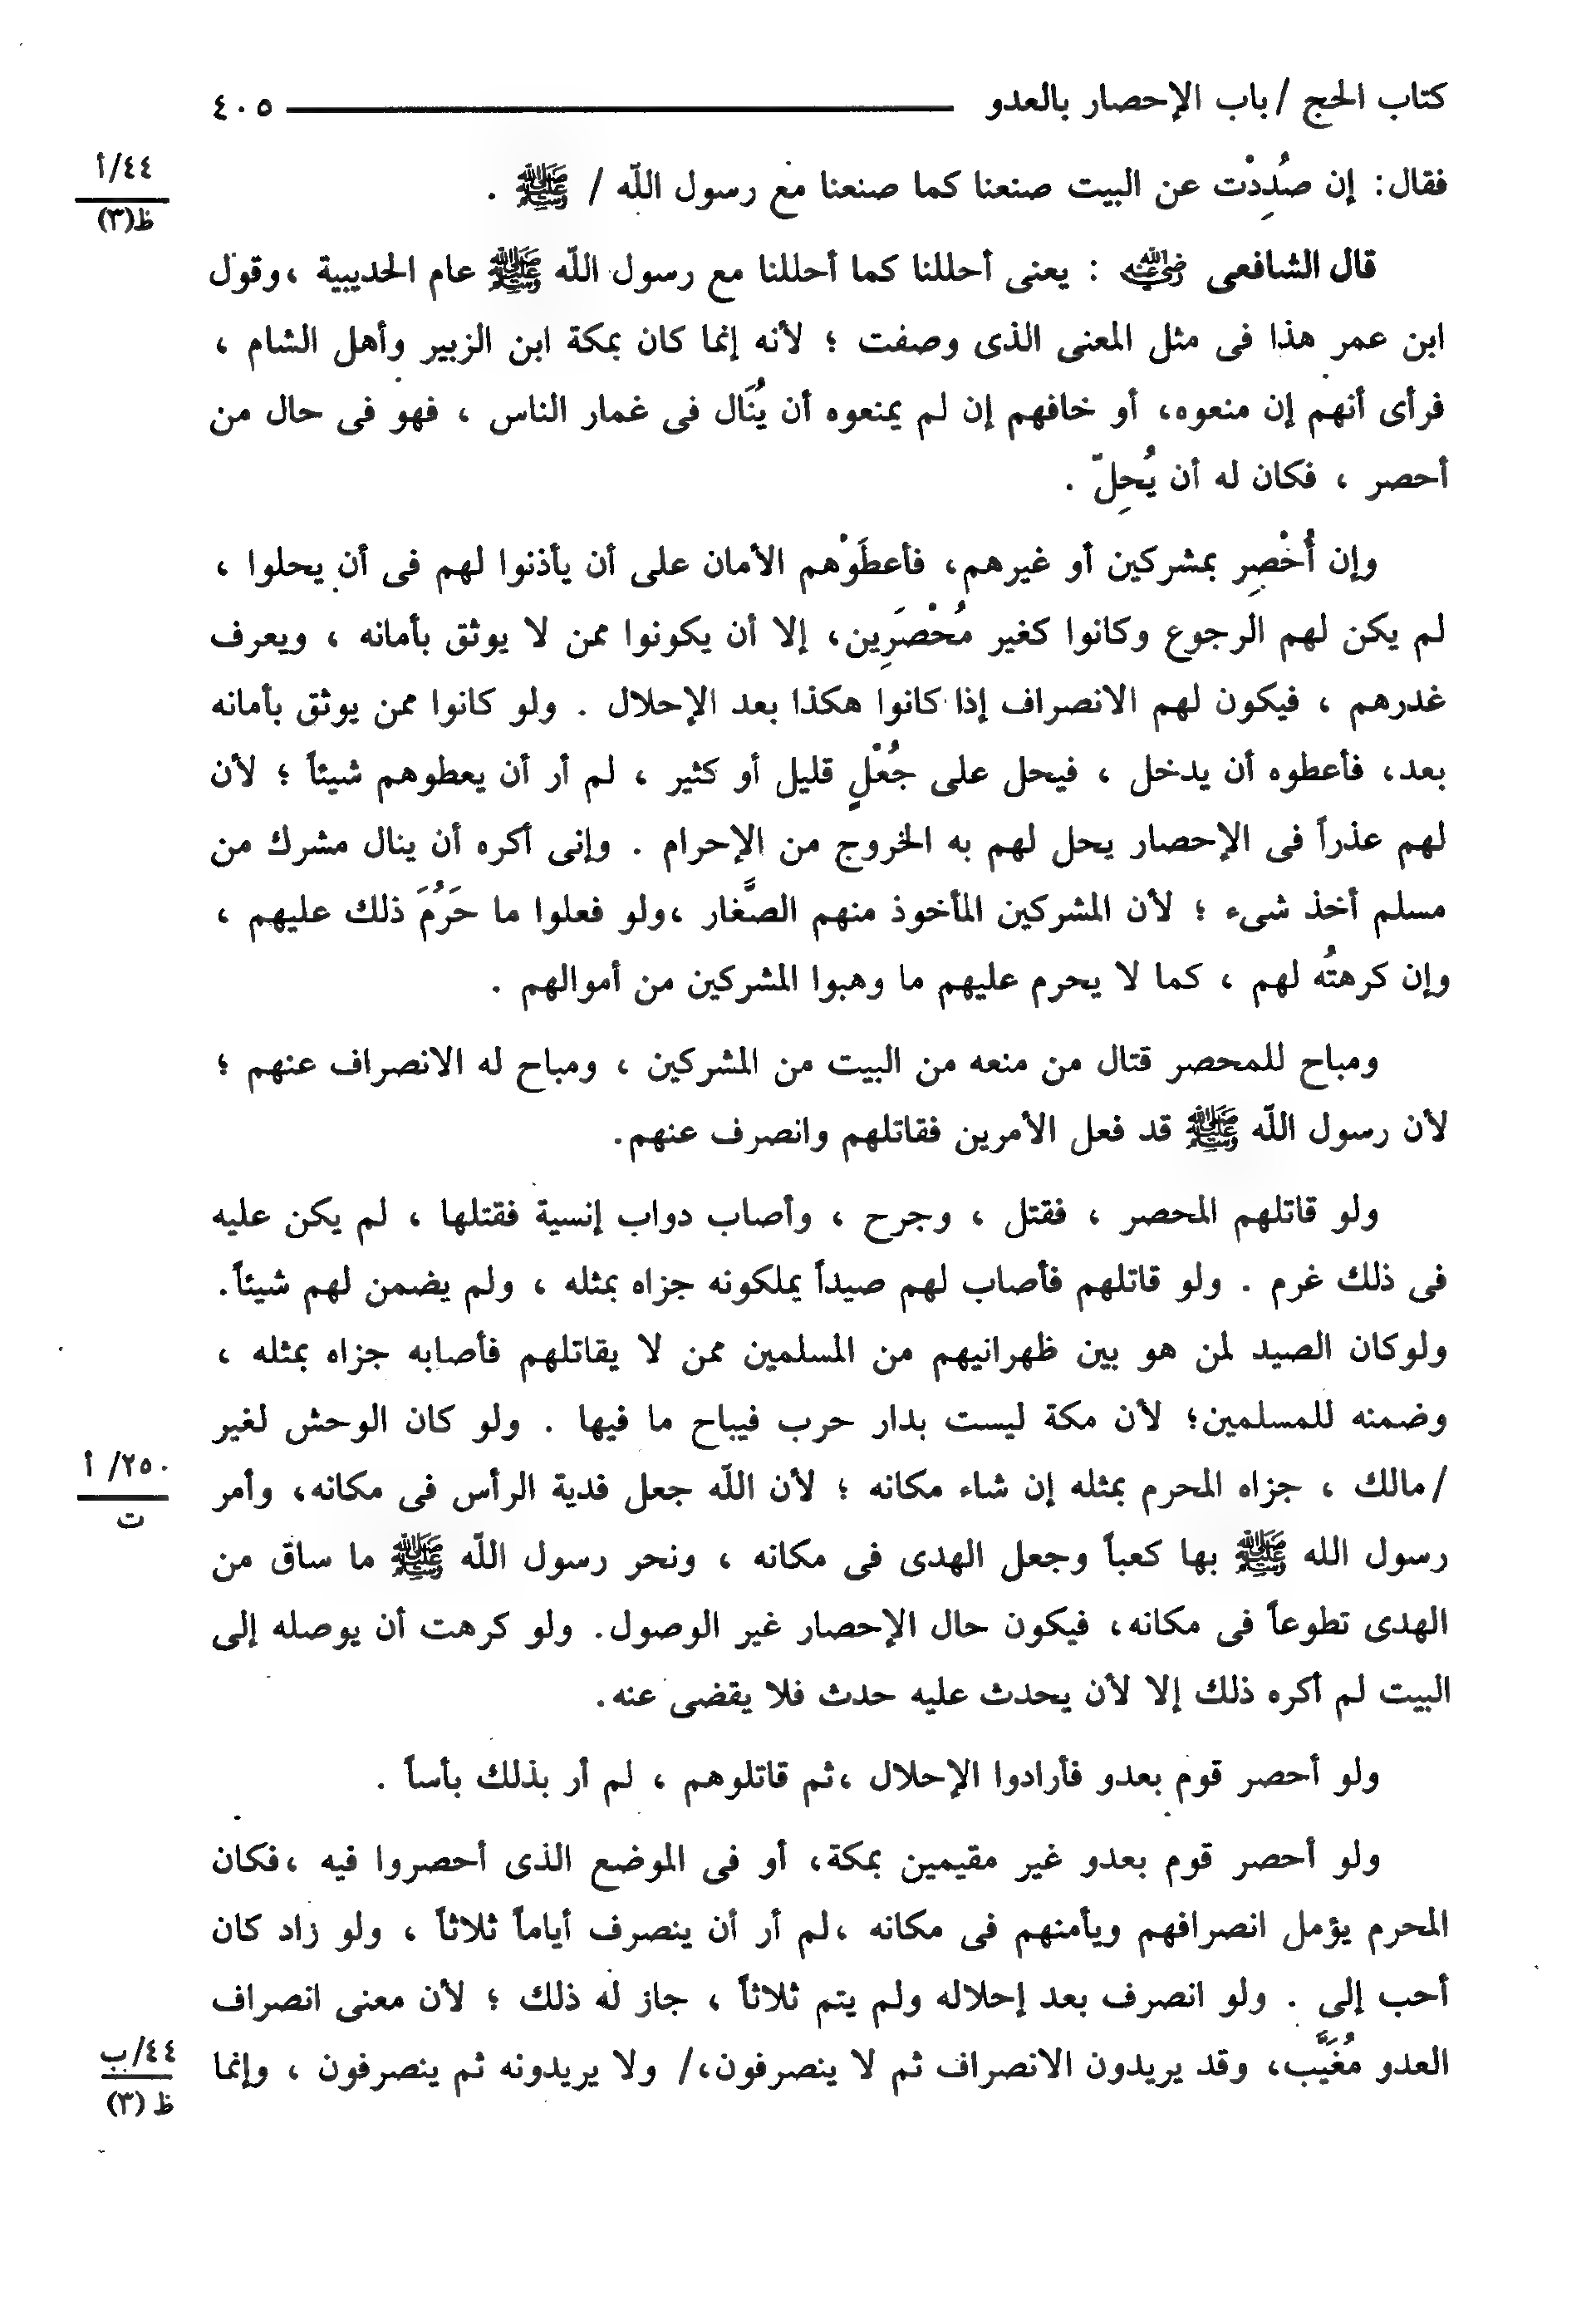 كتاب الحج / باب الإحصار بالعدو ٤٠٥
فقال: إن صُدِدْت عن البيت صنعنا كما صنعنا مع رسول اللّه / ﷺ .
٤٤/أ
ظ(٣)
قال الشافعى رضي الله عنه : يعنى أحللنا كما أحللنا مع رسول اللّه ﷺ عام الحديبية ،وقول
ابن عمر هذا فى مثل المعنى الذى وصفت ؛ لأنه إنما كان بمكة ابن الزبير وأهل الشام ،
فرأى أنهم إن منعوه، أو خافهم إن لم يمنعوه أن يُنَال فى غمار الناس ، فهو فى حال من
أحصر ، فكان له أن يُحِلّ .
وإن أُحْصِر بمشركين أو غيرهم، فأعطَوْهم الأمان على أن يأذنوا لهم فى أن يحلوا ،
لم يكن لهم الرجوع وكانوا كغير مُحْصَرِين، إلا أن يكونوا ممن لا يوثق بأمانه ، ويعرف
غدرهم ، فيكون لهم الانصراف إذا كانوا هكذا بعد الإحلال . ولو كانوا ممن يوثق بأمانه
بعد، فأعطوه أن يدخل ، فيحل على جُعْلٍ قليل أو كثير ، لم أر أن يعطوهم شيئاً ؛ لأن
لهم عذراً فى الإحصار يحل لهم به الخروج من الإحرام . وإنى أكره أن ينال مشرك من
مسلم أخذ شىء ؛ لأن المشركين المأخوذ منهم الصَّغار ،ولو فعلوا ما حَرُمَ ذلك عليهم ،
وإن كرهتُه لهم ، كما لا يحرم عليهم ما وهبوا المشركين من أموالهم .
ومباح للمحصر قتال من منعه من البيت من المشركين ، ومباح له الانصراف عنهم ؛
لأن رسول اللّه ﷺ قد فعل الأمرين فقاتلهم وانصرف عنهم.
ولو قاتلهم المحصر ، فقتل ، وجرح ، وأصاب دواب إنسية فقتلها ، لم يكن عليه
فى ذلك غرم . ولو قاتلهم فأصاب لهم صيداً يملكونه جزاه بمثله ، ولم يضمن لهم شيئاً.
ولوكان الصيد لمن هو بين ظهرانيهم من المسلمين ممن لا يقاتلهم فأصابه جزاه بمثله ،
وضمنه للمسلمين؛ لأن مكة ليست بدار حرب فيباح ما فيها . ولو كان الوحش لغير
/مالك ، جزاه المحرم بمثله إن شاء مكانه ؛ لأن اللّه جعل فدية الرأس فى مكانه، وأمر
٢٥٠/ أ
ت
رسول الله ﷺ بها كعباً وجعل الهدى فى مكانه ، ونحر رسول اللّه ﷺ ما ساق من
الهدى تطوعاً فى مكانه، فيكون حال الإحصار غير الوصول. ولو كرهت أن يوصله إلى
البيت لم أكره ذلك إلا لأن يحدث عليه حدث فلا يقضى عنه.
ولو أحصر قوم بعدو فأرادوا الإحلال ،ثم قاتلوهم ، لم أر بذلك بأساً .
ولو أحصر قوم بعدو غير مقيمين بمكة، أو فى الموضع الذى أحصروا فيه ،فكان
المحرم يؤمل انصرافهم ويأمنهم فى مكانه ،لم أر أن ينصرف أياماً ثلاثاً ، ولو زاد كان
أحب إلى . ولو انصرف بعد إحلاله ولم يتم ثلاثاً ، جاز له ذلك ؛ لأن معنى انصراف
العدو مُغَيَّب، وقد يريدون الانصراف ثم لا ينصرفون،/ ولا يريدونه ثم ينصرفون ، وإنما
٤٤/ب
ظ (٣)